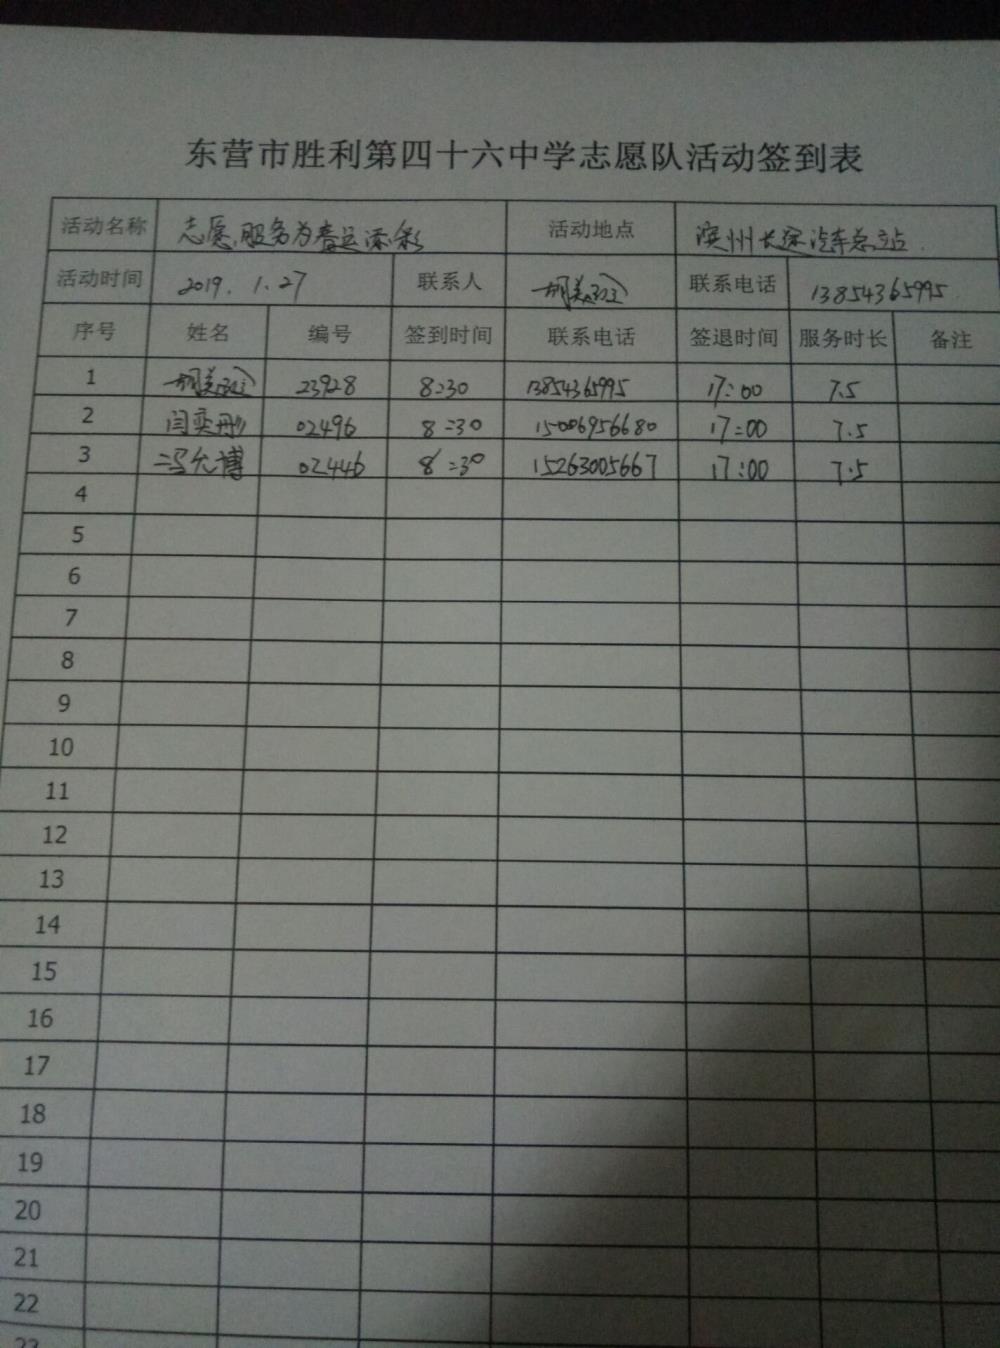 东营市胜利第四十六中学志愿队活动签到表
活动名称 志愿服务为春运添彩 活动地点 滨州长途汽车总站
活动时间 2019.1.27 联系人 胡美 联系电话 13854365995
序号 姓名 编号 签到时间 联系电话 签退时间 服务时长 备注
1 胡美 23928 8:30 13854365995 17:00 7.5
2 闫奕彤 02496 8:30 15006956680 17:00 7.5
3 冯允博 02446 8:30 15263005667 17:00 7.5
4
5
6
7
8
9
10
11
12
13
14
15
16
17
18
19
20
21
22
23